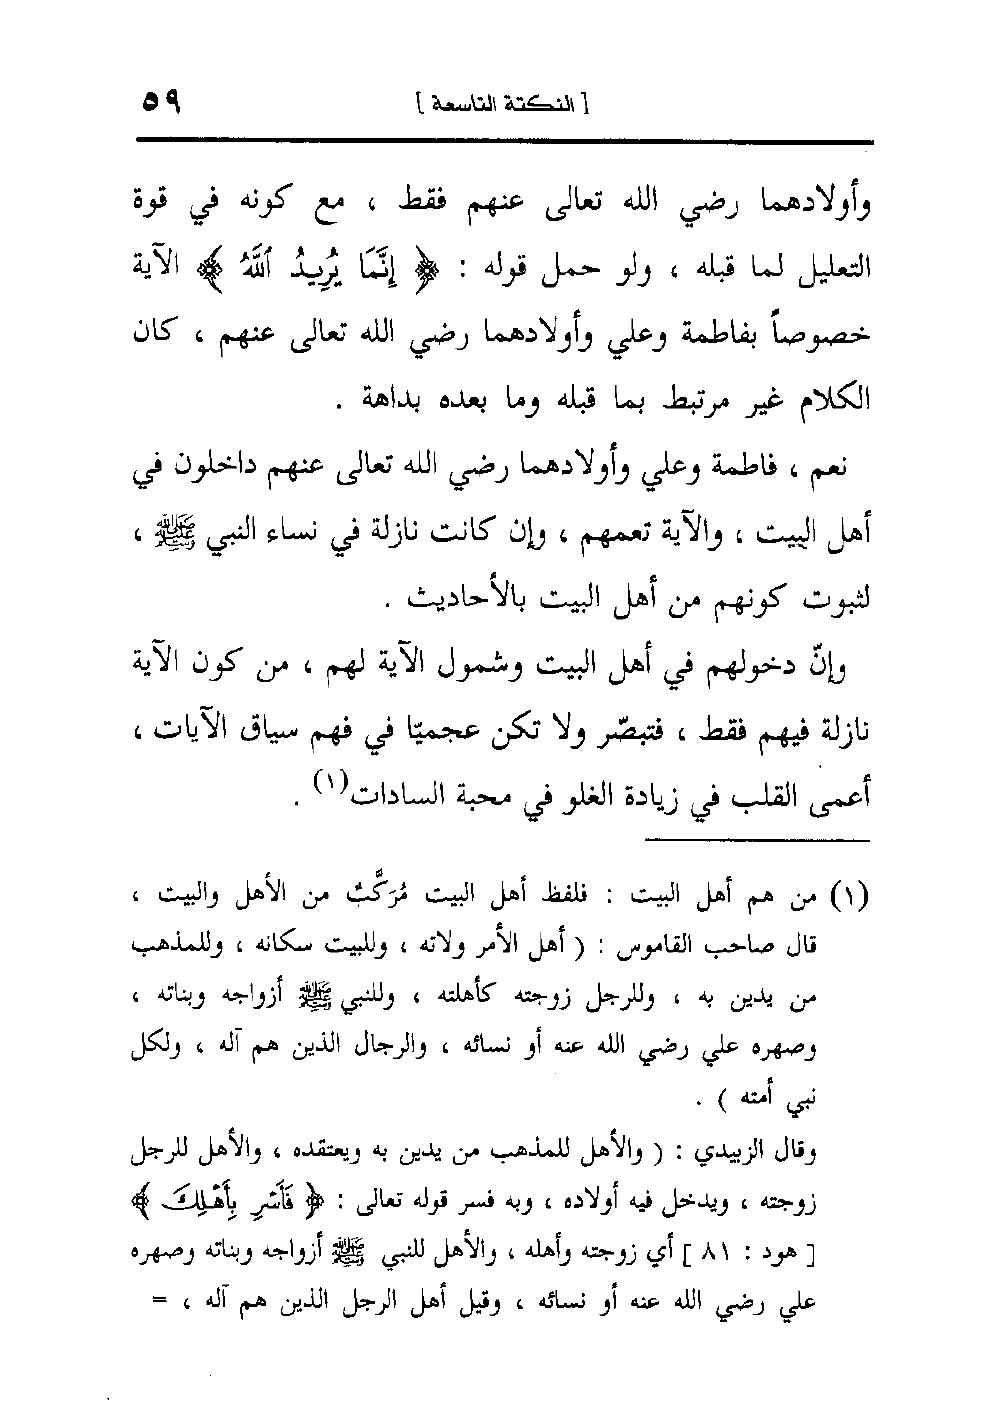 [ النكتة التاسعة ] ٥٩
وأولادهما رضي الله تعالى عنهم فقط ، مع كونه في قوة
التعليل لما قبله ، ولو حمل قوله : ﴿ إِنَّمَا يُرِيدُ ٱللَّهُ ﴾ الآية
خصوصاً بفاطمة وعلي وأولادهما رضي الله تعالى عنهم ، كان
الكلام غير مرتبط بما قبله وما بعده بداهة .
نعم ، فاطمة وعلي وأولادهما رضي الله تعالى عنهم داخلون في
أهل البيت ، والآية تعمهم ، وإن كانت نازلة في نساء النبي ﷺ ،
لثبوت كونهم من أهل البيت بالأحاديث .
وإنّ دخولهم في أهل البيت وشمول الآية لهم ، من كون الآية
نازلة فيهم فقط ، فتبصّر ولا تكن عجميّا في فهم سياق الآيات ،
أعمى القلب في زيادة الغلو في محبة السادات(١) .
(١) من هم أهل البيت : فلفظ أهل البيت مُرَكَّبٌ من الأهل والبيت ،
قال صاحب القاموس : ( أهل الأمر ولاته ، وللبيت سكانه ، وللمذهب
من يدين به ، وللرجل زوجته كأهلته ، وللنبي ﷺ أزواجه وبناته ،
وصهره علي رضي الله عنه أو نسائه ، والرجال الذين هم آله ، ولكل
نبي أمته ) .
وقال الزبيدي : ( والأهل للمذهب من يدين به ويعتقده ، والأهل للرجل
زوجته ، ويدخل فيه أولاده ، وبه فسر قوله تعالى : ﴿ فَأَسْرِ بِأَهْلِكَ ﴾
[ هود : ٨١ ] أي زوجته وأهله ، والأهل للنبي ﷺ أزواجه وبناته وصهره
علي رضي الله عنه أو نسائه ، وقيل أهل الرجل الذين هم آله ، =